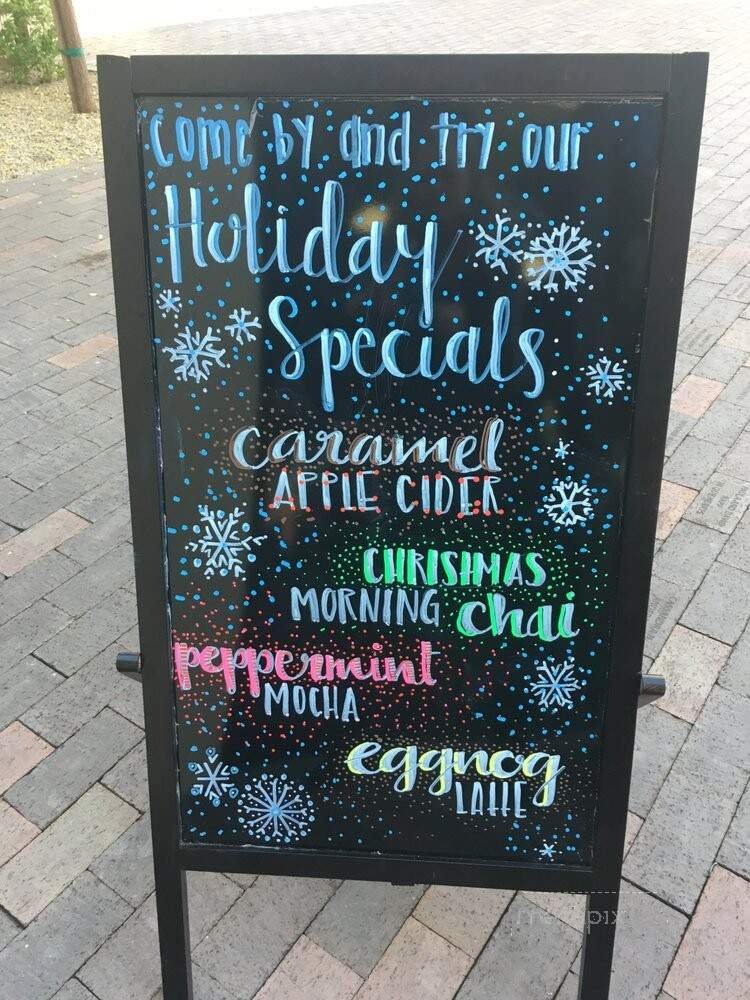 come by and try our
Holiday
Specials
caramel
APPLE CIDER
CHRISHMAS
MORNING chai
peppermint
MOCHA
eggnog
LATTE